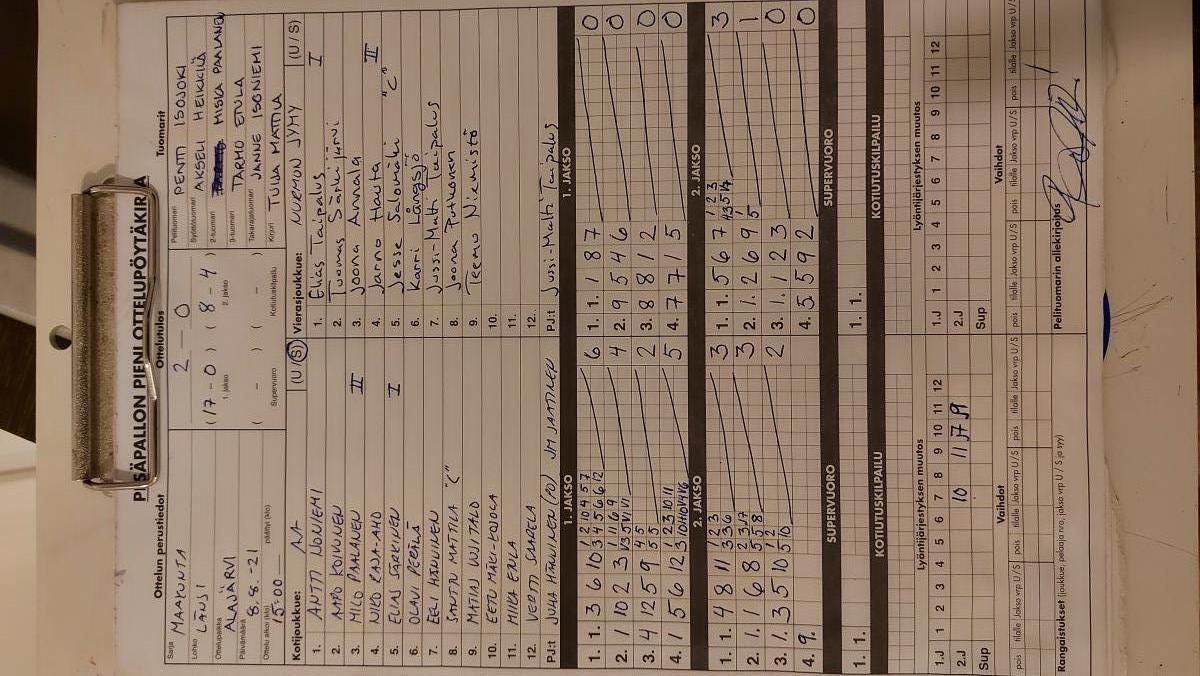 PESÄPALLON PIENI OTTELUPÖYTÄKIRJA
Ottelun perustiedot
Sarja MAAKUNTA
Lohko LÄNSI
Ottelupaikka ALAJÄRVI
Päivämäärä 8.8.-21
Ottelu alkoi (klo) 15.00 päättyi (klo)
Ottelutulos
2 - 0
(17 - 0) (8 - 4)
1. jakso 2. jakso
( - ) ( - )
Supervuoro Kotiutuskilpailu
Tuomarit
Pelituomari PENTTI ISOJOKI
Syöttötuomari AKSELI HEIKKILÄ
2-tuomari MISKA PAALANEN
3-tuomari TARMO ETULA
Takarajatuomari JANNE ISONIEMI
Kirjuri TUIJA MATTILA
Kotijoukkue: AA (U/S)
1. ANTTI NOUNIEMI
2. AAPO KOIVUNEN
3. MILO PAALANEN II
4. NIKO RAJA-AHO
5. ELIAS SÄRKINEN I
6. OLAVI PERÄLÄ
7. EELI HÄNNINEN
8. SANTTU MATTILA "C"
9. MATIAS UUSITALO
10. EETU MÄKI-KOJOLA
11. MIIKA ENLA
12. VERTTI SAARELA
PJ:t JUHA HÄNNINEN (PJ) JM JAATINEN
Vierasjoukkue: NURMON JYMY (U/S)
1. Elias Taipalus I
2. Tuomas Särkijärvi
3. Joona Annala
4. Jarno Hauta II
5. Jesse Salomäki "C"
6. Karri Långsjö
7. Jussi-Matti Taipalus
8. Joona Putkonen
9. Teemu Niemistö
10.
11.
12.
PJ:t Jussi-Matti Taipalus
1. JAKSO
1. 1. 3 6 10 6
2. 1 10 2 3 4
3. 4 12 5 9 2
4. 1 5 6 12 5
2. JAKSO
1. 1. 4 8 11 3
2. 1. 6 8 3
3. 1. 3 5 10 2
4. 9.
SUPERVUORO
1. 1.
KOTIUTUSKILPAILU
1. JAKSO
1. 1. 1 8 7 0
2. 9 5 4 6 0
3. 8 8 1 2 0
4. 7 7 1 5 0
2. JAKSO
1. 1. 5 6 7 3
2. 1. 2 6 9 1
3. 1. 1 2 3 0
4. 5 5 9 2 0
SUPERVUORO
1. 1.
KOTIUTUSKILPAILU
Lyöntijärjestyksen muutos
1.J 1 2 3 4 5 6 7 8 9 10 11 12
2.J 10 11 7 9
Sup
Vaihdot
pois tilalle Jakso vrp U/S pois tilalle Jakso vrp U/S pois tilalle Jakso vrp U/S
Rangaistukset (joukkue, pelaaja nro, jakso vrp U / S ja syy)
Lyöntijärjestyksen muutos
1.J 1 2 3 4 5 6 7 8 9 10 11 12
2.J
Sup
Vaihdot
pois tilalle Jakso vrp U/S pois tilalle Jakso vrp U/S pois tilalle Jakso vrp U/S
Pelituomarin allekirjoitus